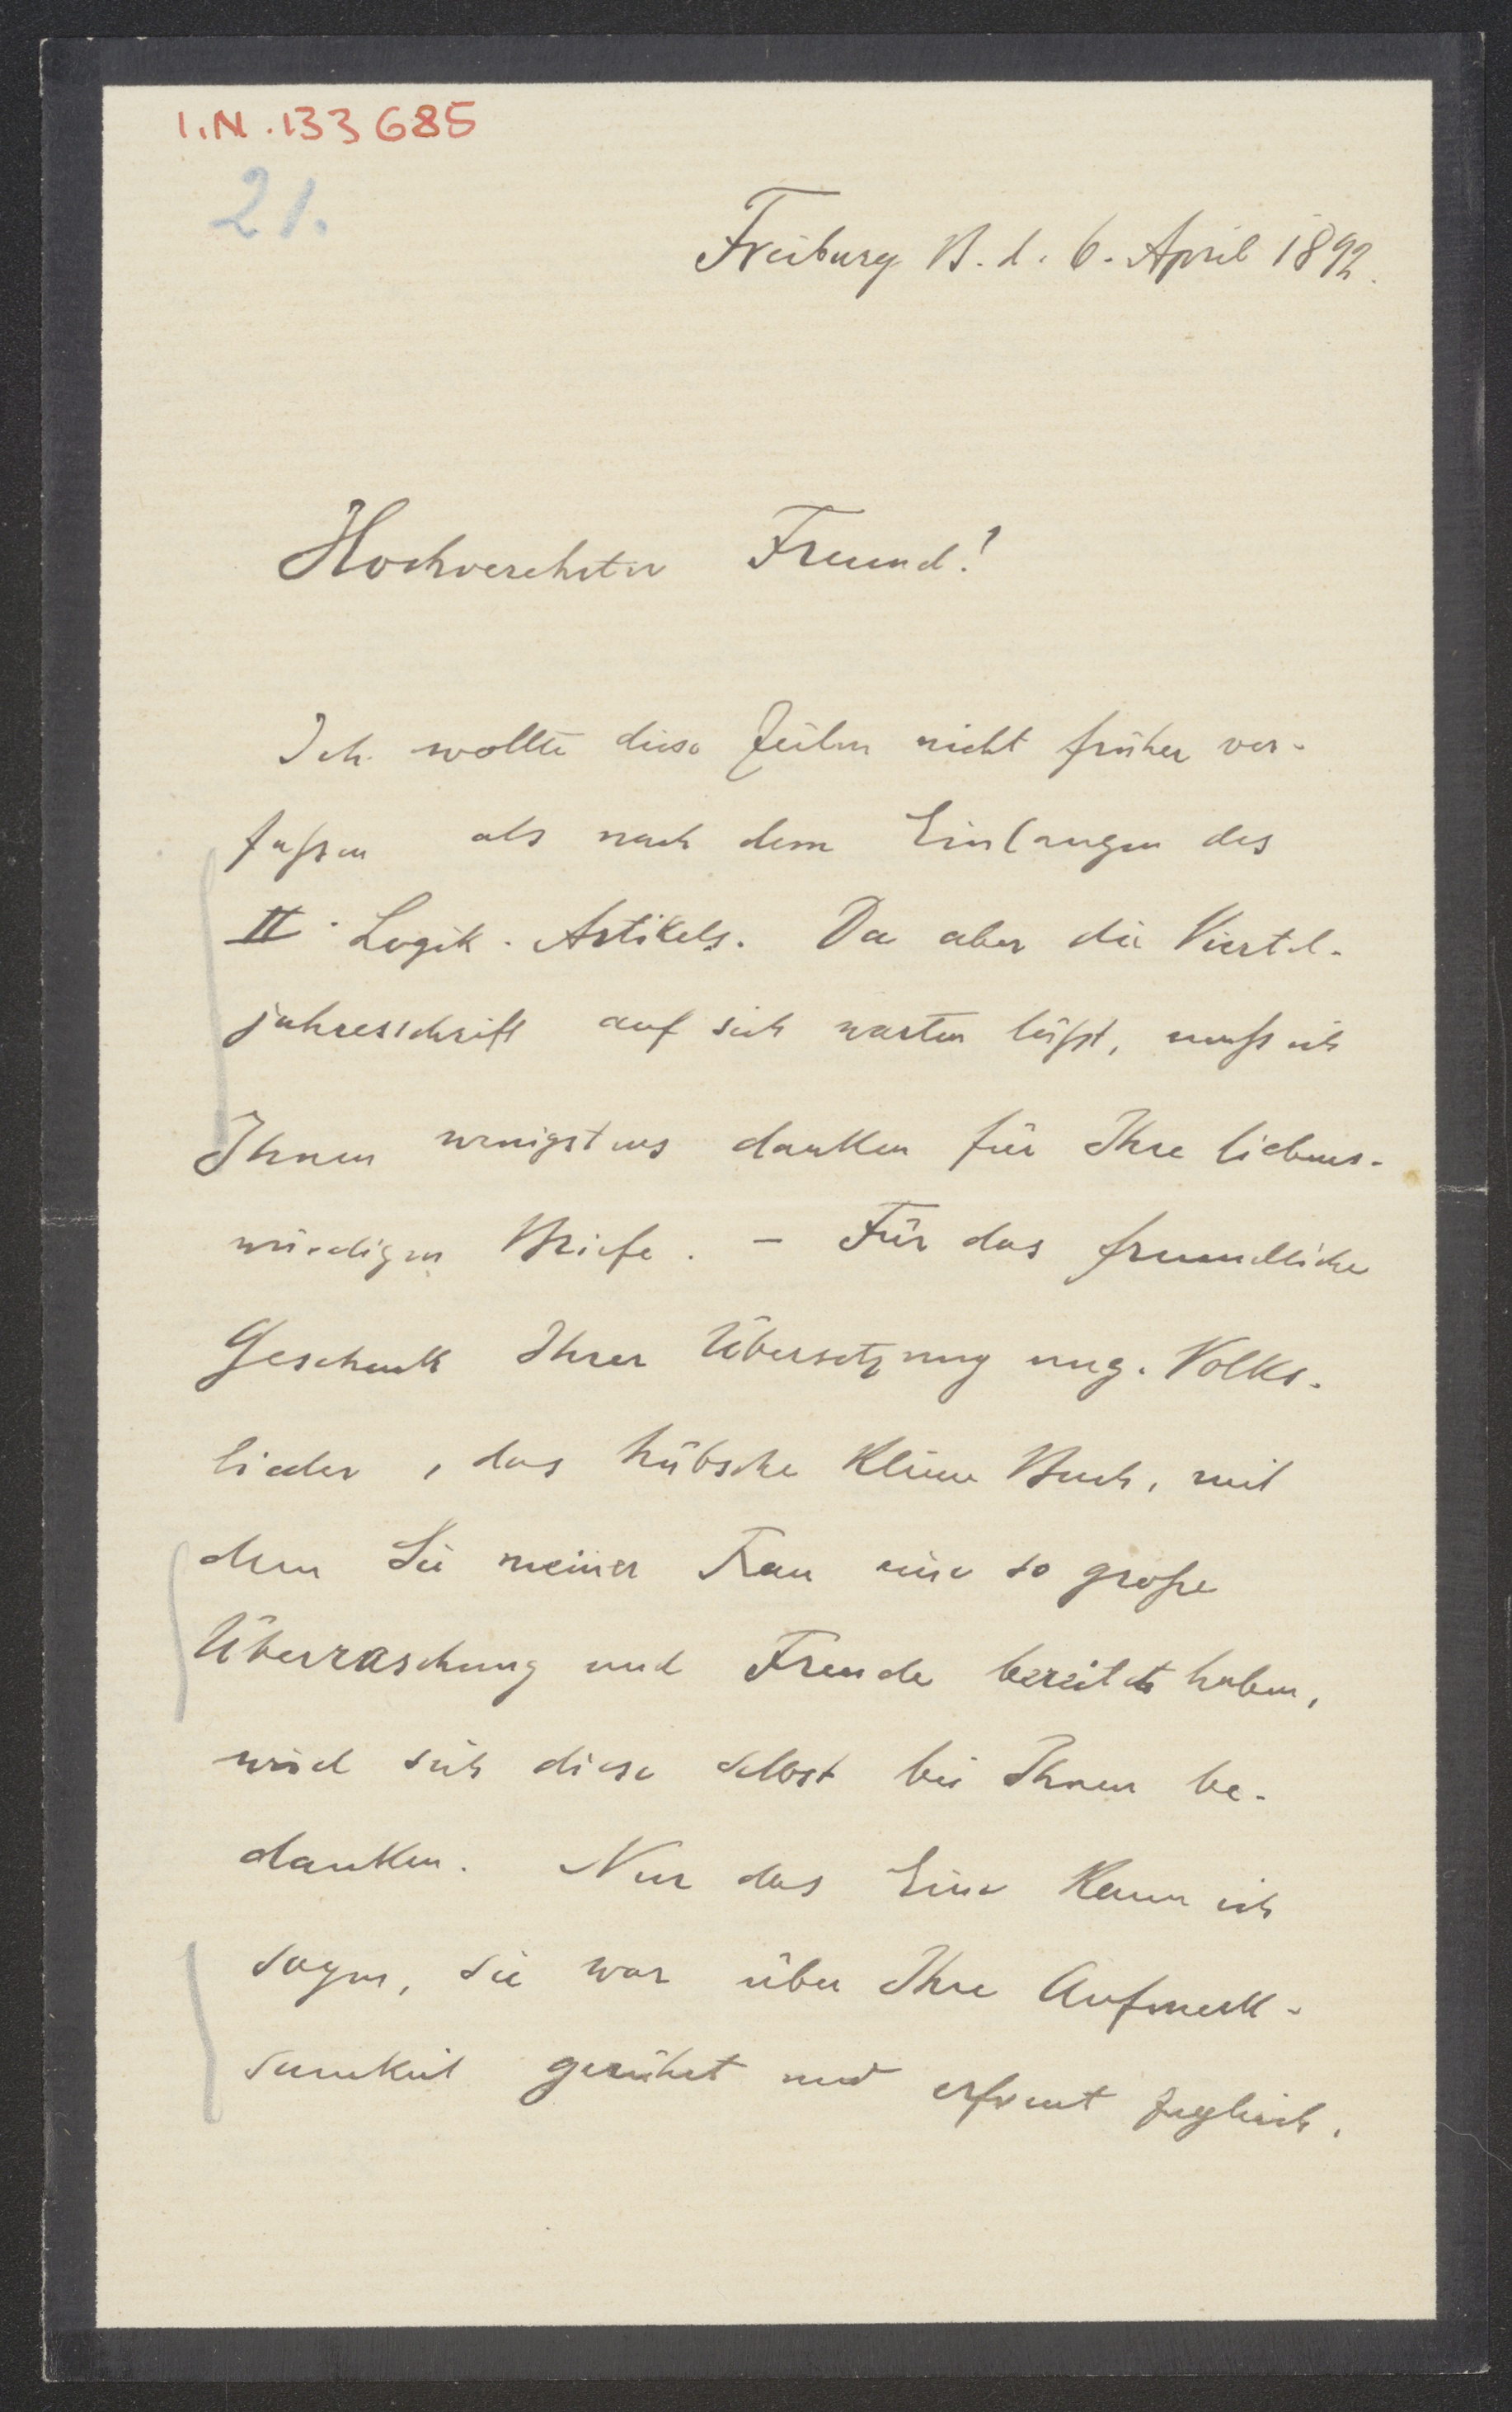 I.N. 133685
21.
Freiburg B. d. 6. April 1892.
Hochverehrter Freund!
Ich wollte diese Zeilen nicht früher ver-
faßen als nach dem Einlangen des
II. Logik-Artikels. Da aber die Viertel-
jahresschrift auf sich warten läßt, muß ich
Ihnen wenigstens danken für Ihre liebens-
würdigen Briefe. – Für das freundliche
Geschenk Ihrer Übersetzung ung. Volks-
lieder, das hübsche kleine Buch, mit
dem Sie meiner Frau eine so große
Überraschung und Freude bereitet haben,
wird sich diese selbst bei Ihnen be-
danken. Nur das Eine kann ich
sagen, sie war über Ihre Aufmerk-
samkeit gerührt und erfreut zugleich.